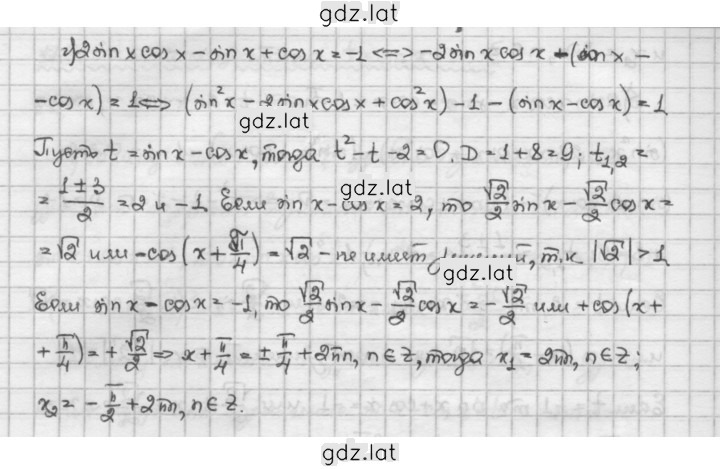 gdz.lat
г) 2 sin x cos x - sin x + cos x = -1 <=> -2 sin x cos x + (sin x -
- cos x) = 1 <=> (sin²x - 2 sin x cos x + cos²x) - 1 - (sin x - cos x) = 1
gdz.lat
Пусть t = sin x - cos x, тогда t² - t - 2 = 0. D = 1 + 8 = 9; t₁,₂ =
= (1 ± 3)/2 = 2 и -1. Если sin x - cos x = 2, то √2/2 sin x - √2/2 cos x =
gdz.lat
= √2 или -cos(x + π/4) = √2 - не имеет, т.к |√2| > 1
gdz.lat
Если sin x - cos x = -1, то √2/2 sin x - √2/2 cos x = -√2/2 или +cos(x +
+ π/4) = +√2/2 => x + π/4 = ± π/4 + 2πn, n ∈ Z, тогда x₁ = 2πn, n ∈ Z;
gdz.lat
x₂ = -π/2 + 2πn, n ∈ Z.
gdz.lat